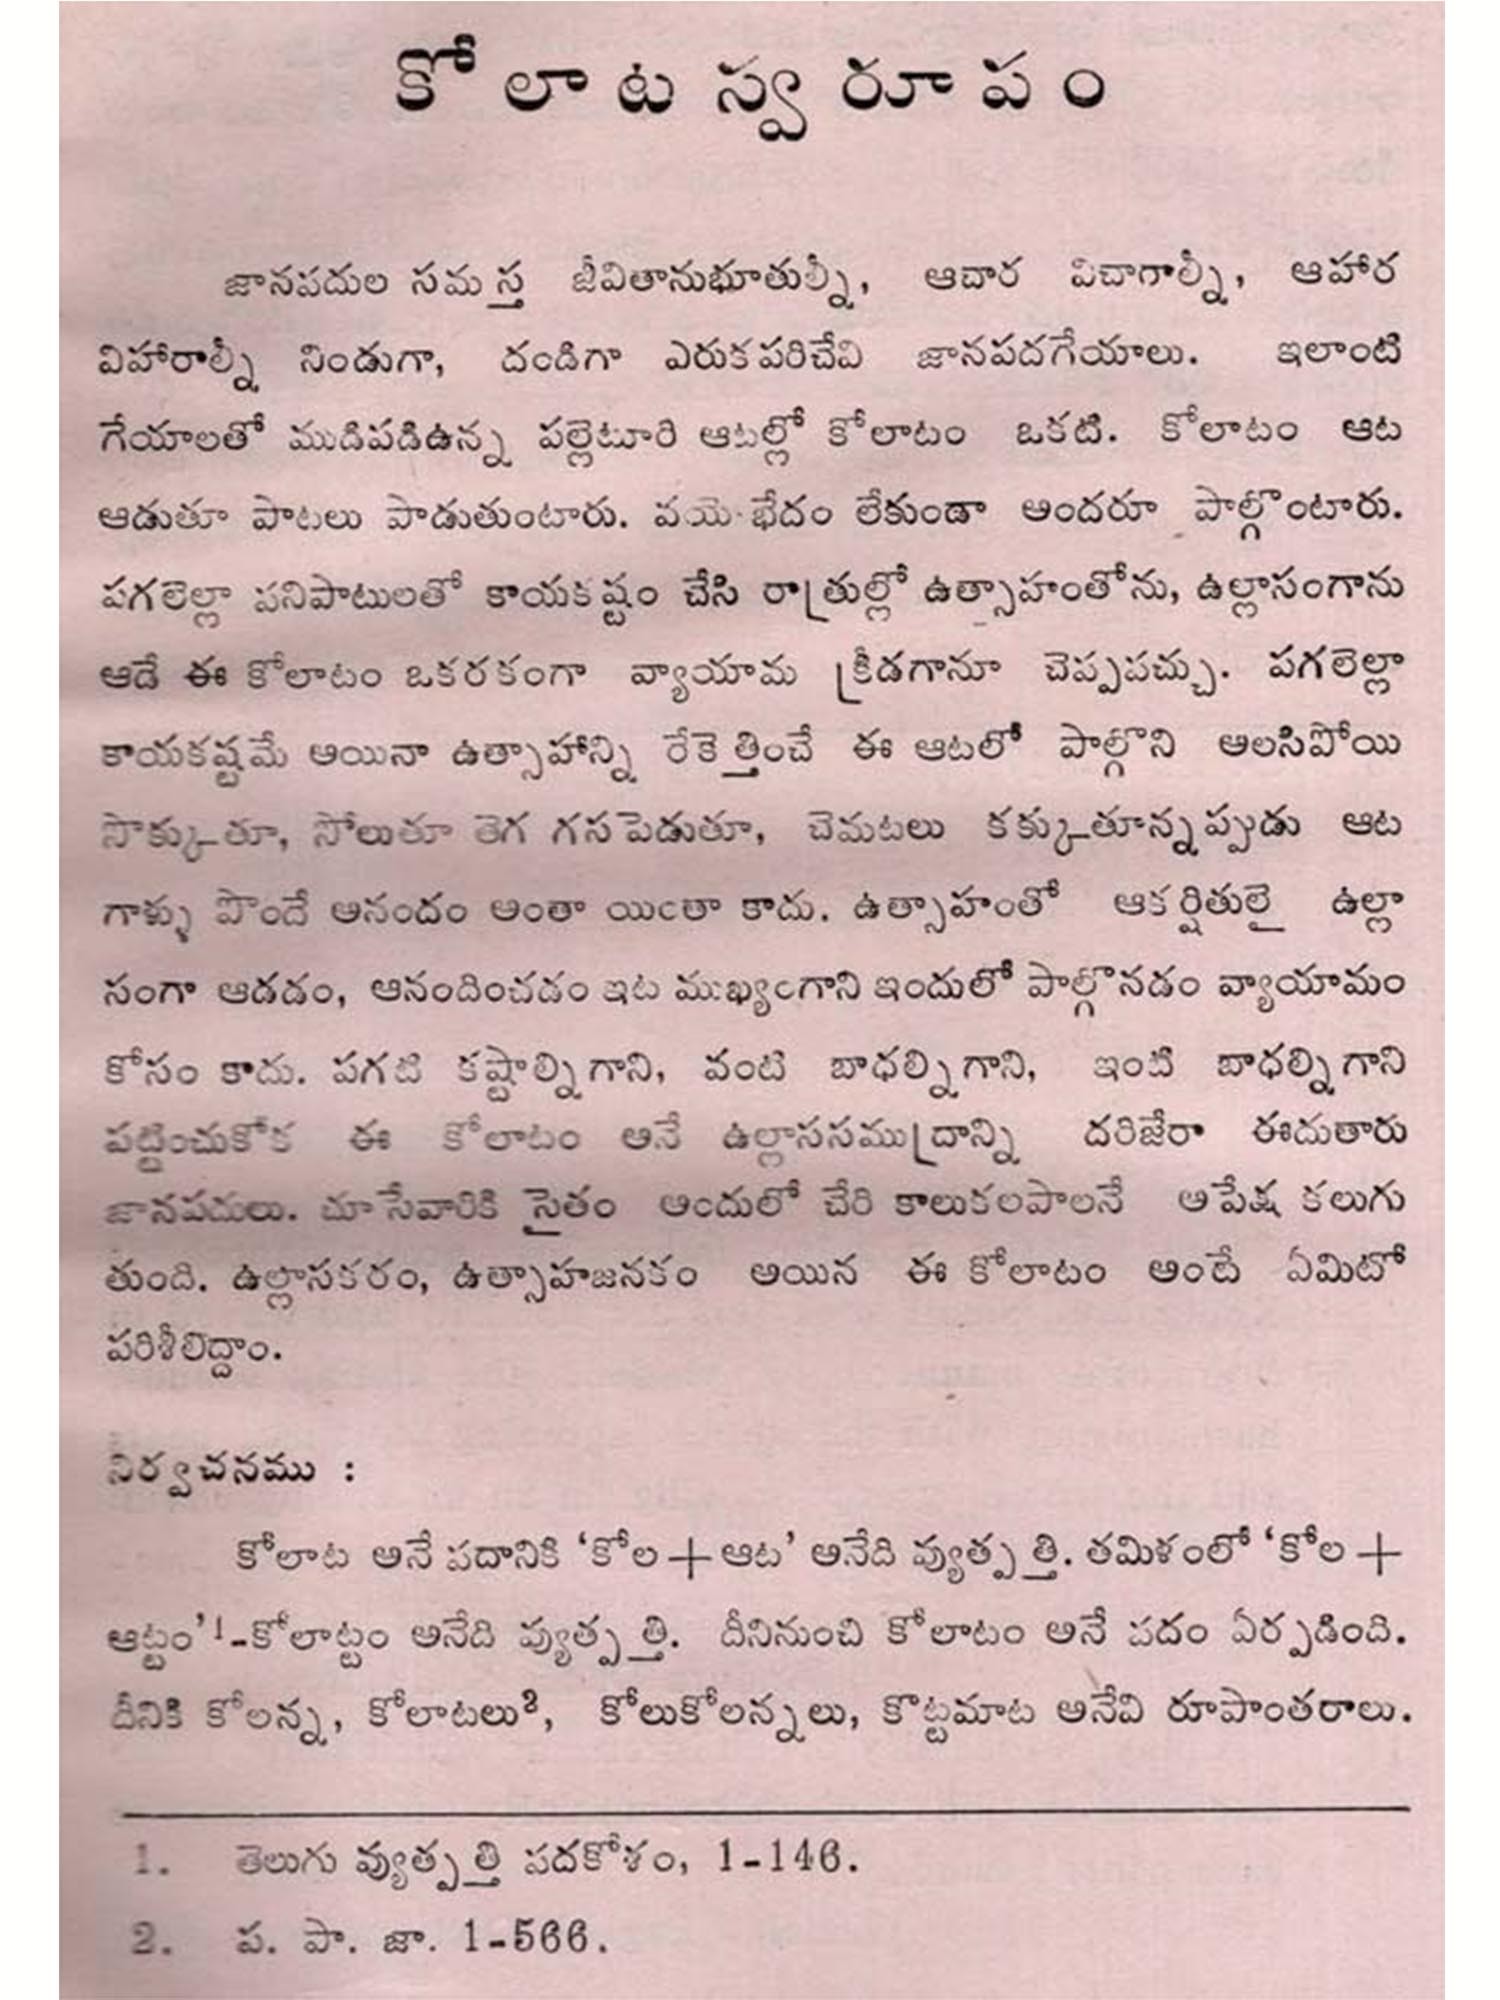 కోలాటస్వరూపం
జానపదుల సమస్త జీవితానుభూతుల్నీ, ఆచార విచాగాల్నీ, ఆహార
విహారాల్నీ నిండుగా, దండిగా ఎరుకపరిచేవి జానపదగేయాలు. ఇలాంటి
గేయాలతో ముడిపడిఉన్న పల్లెటూరి ఆటల్లో కోలాటం ఒకటి. కోలాటం ఆట
ఆడుతూ పాటలు పాడుతుంటారు. వయోభేదం లేకుండా అందరూ పాల్గొంటారు.
పగలెల్లా పనిపాటులతో కాయకష్టం చేసి రాత్రుల్లో ఉత్సాహంతోను, ఉల్లాసంగాను
ఆడే ఈ కోలాటం ఒకరకంగా వ్యాయామ క్రీడగానూ చెప్పపచ్చు. పగలెల్లా
కాయకష్టమే అయినా ఉత్సాహాన్ని రేకెత్తించే ఈ ఆటలో పాల్గొని అలసిపోయి
సొక్కుతూ, సోలుతూ తెగ గసపెడుతూ, చెమటలు కక్కుతూన్నప్పుడు ఆట
గాళ్ళు పొందే ఆనందం అంతా యింతా కాదు. ఉత్సాహంతో ఆకర్షితులై ఉల్లా
సంగా ఆడడం, ఆనందించడం ఇట ముఖ్యంగాని ఇందులో పాల్గొనడం వ్యాయామం
కోసం కాదు. పగటి కష్టాల్నిగాని, వంటి బాధల్నిగాని, ఇంటి బాధల్నిగాని
పట్టించుకోక ఈ కోలాటం అనే ఉల్లాససముద్రాన్ని దరిజేరా ఈదుతారు
జానపదులు. చూసేవారికి సైతం అందులో చేరి కాలుకలపాలనే అపేక్ష కలుగు
తుంది. ఉల్లాసకరం, ఉత్సాహజనకం అయిన ఈ కోలాటం అంటే ఏమిటో
పరిశీలిద్దాం.
నిర్వచనము :
కోలాట అనే పదానికి ‘కోల+ఆట’ అనేది వ్యుత్పత్తి. తమిళంలో ‘కోల+
ఆట్టం’¹-కోలాట్టం అనేది వ్యుత్పత్తి. దీనినుంచి కోలాటం అనే పదం ఏర్పడింది.
దీనికి కోలన్న, కోలాటలు², కోలుకోలన్నలు, కొట్టమాట అనేవి రూపాంతరాలు.
1. తెలుగు వ్యుత్పత్తి పదకోశం, 1-146.
2. ప. పా. జా. 1-566.